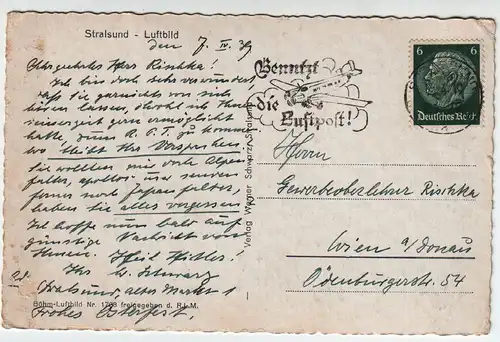 Stralsund - Luftbild
den 7. IV. 39
Sehr geehrter Herr Rischka!
Ich bin doch sehr verwundert,
daß Sie garnichts von sich
hören lassen, obwohl ich Ihnen
seinerzeit gern ermöglicht
hatte, zum zu kommen.
Wo bleibt Ihr Versprechen.
Sie wollten mir doch Alpen
falter, apollos usw senden
ferner noch Japanfalter,
haben Sie alles vergessen
Ich hoffe nun bald auf
günstige Nachricht von
Ihnen. Heil Hitler!
Ihr W. Schwarz
Stralsund, alter Markt 1
Böhm-Luftbild Nr. 1768 freigegeben d. R.L.M.
Frohes Osterfest,
Verlag Werner Schwarz, Stralsund
Benutzt
die
Luftpost!
6 6
Deutsches Reich
Herrn
Gewerbeoberlehrer Rischka
Wien a/Donau
Ödenburgerstr. 54